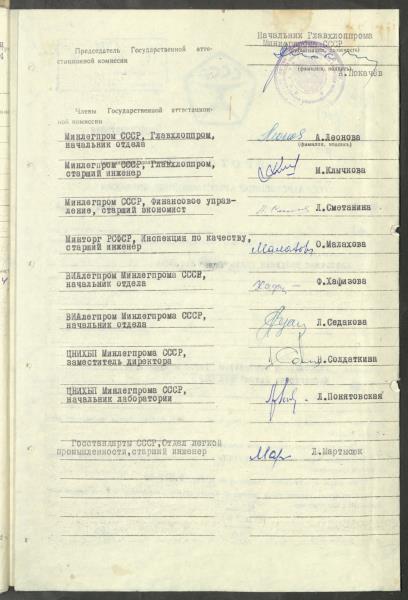 Начальник Главхлоппрома
Минлегпрома СССР
Председатель Государственной атте-
стационной комиссии
(фамилия, подпись)
А.Локачёв
Члены Государственной аттестацион-
ной комиссии
Минлегпром СССР, Главхлоппром,
начальник отдела
А.Леонова
(фамилия, подпись)
Минлегпром СССР, Главхлоппром,
старший инженер
М.Климчкова
Минлегпром СССР, Финансовое управ-
ление, старший экономист
Л.Сметанина
Минторг РСФСР, Инспекция по качеству,
старший инженер
Малахов
О.Малахова
ВИАлегпром Минлегпрома СССР,
начальник отдела
Ф.Хафизова
ВИАлегпром Минлегпрома СССР,
начальник отдела
Л.Седакова
ЦНИХБП Минлегпрома СССР,
заместитель директора
В.Солдаткина
ЦНИХБП Минлегпрома СССР,
начальник лаборатории
Л.Понятовская
Госстандарты СССР,Отдел легкой
промышленности,старший инженер
Мар
Л.Мартысюк